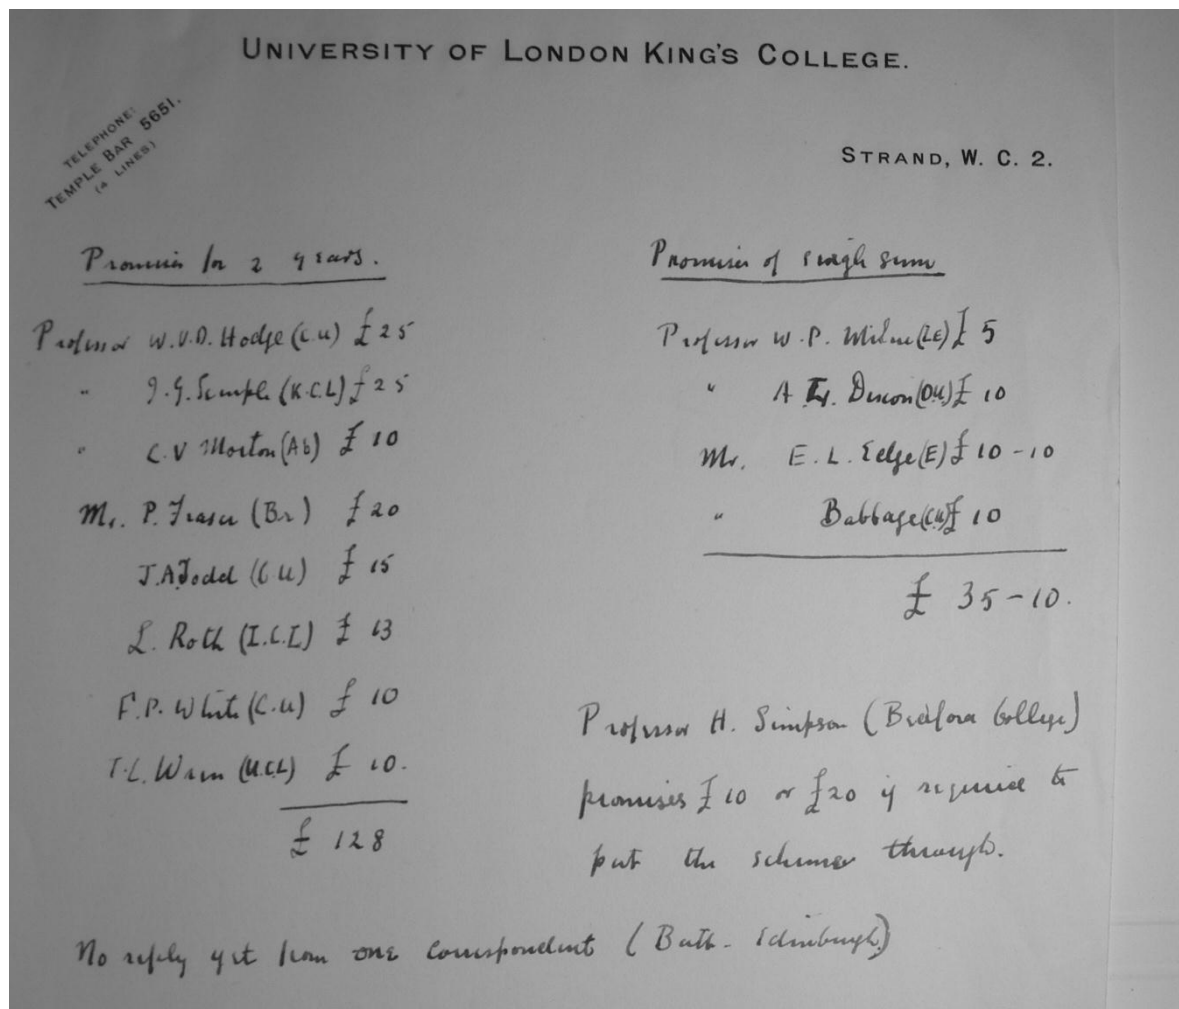 UNIVERSITY OF LONDON KING'S COLLEGE.
TELEPHONE:
TEMPLE BAR 5651.
(4 LINES)
STRAND, W. C. 2.
Promises for 2 years.
Professor W.V.D. Hodge (C.U) £25
" J.G. Semple (K.C.L) £25
" C.V Morton (Ab) £10
Mr. P. Fraser (Br) £20
J.A Todd (C U) £ 15
L. Roth (I.C.L) £ 13
F.P. White (C.U) £ 10
T.L. Wren (U.C.L) £ 10.
£ 128
Promises of single sum
Professor W.P. Milne (Le) £ 5
" A Dixon (O.U) £ 10
Mr. E. L. Edge (E) £ 10-10
" Babbage (C.U) £ 10
£ 35-10.
Professor H. Simpson (Bedford College)
promises £10 or £20 if required to
put the scheme through.
No reply yet from one correspondent (Bath - Edinburgh)